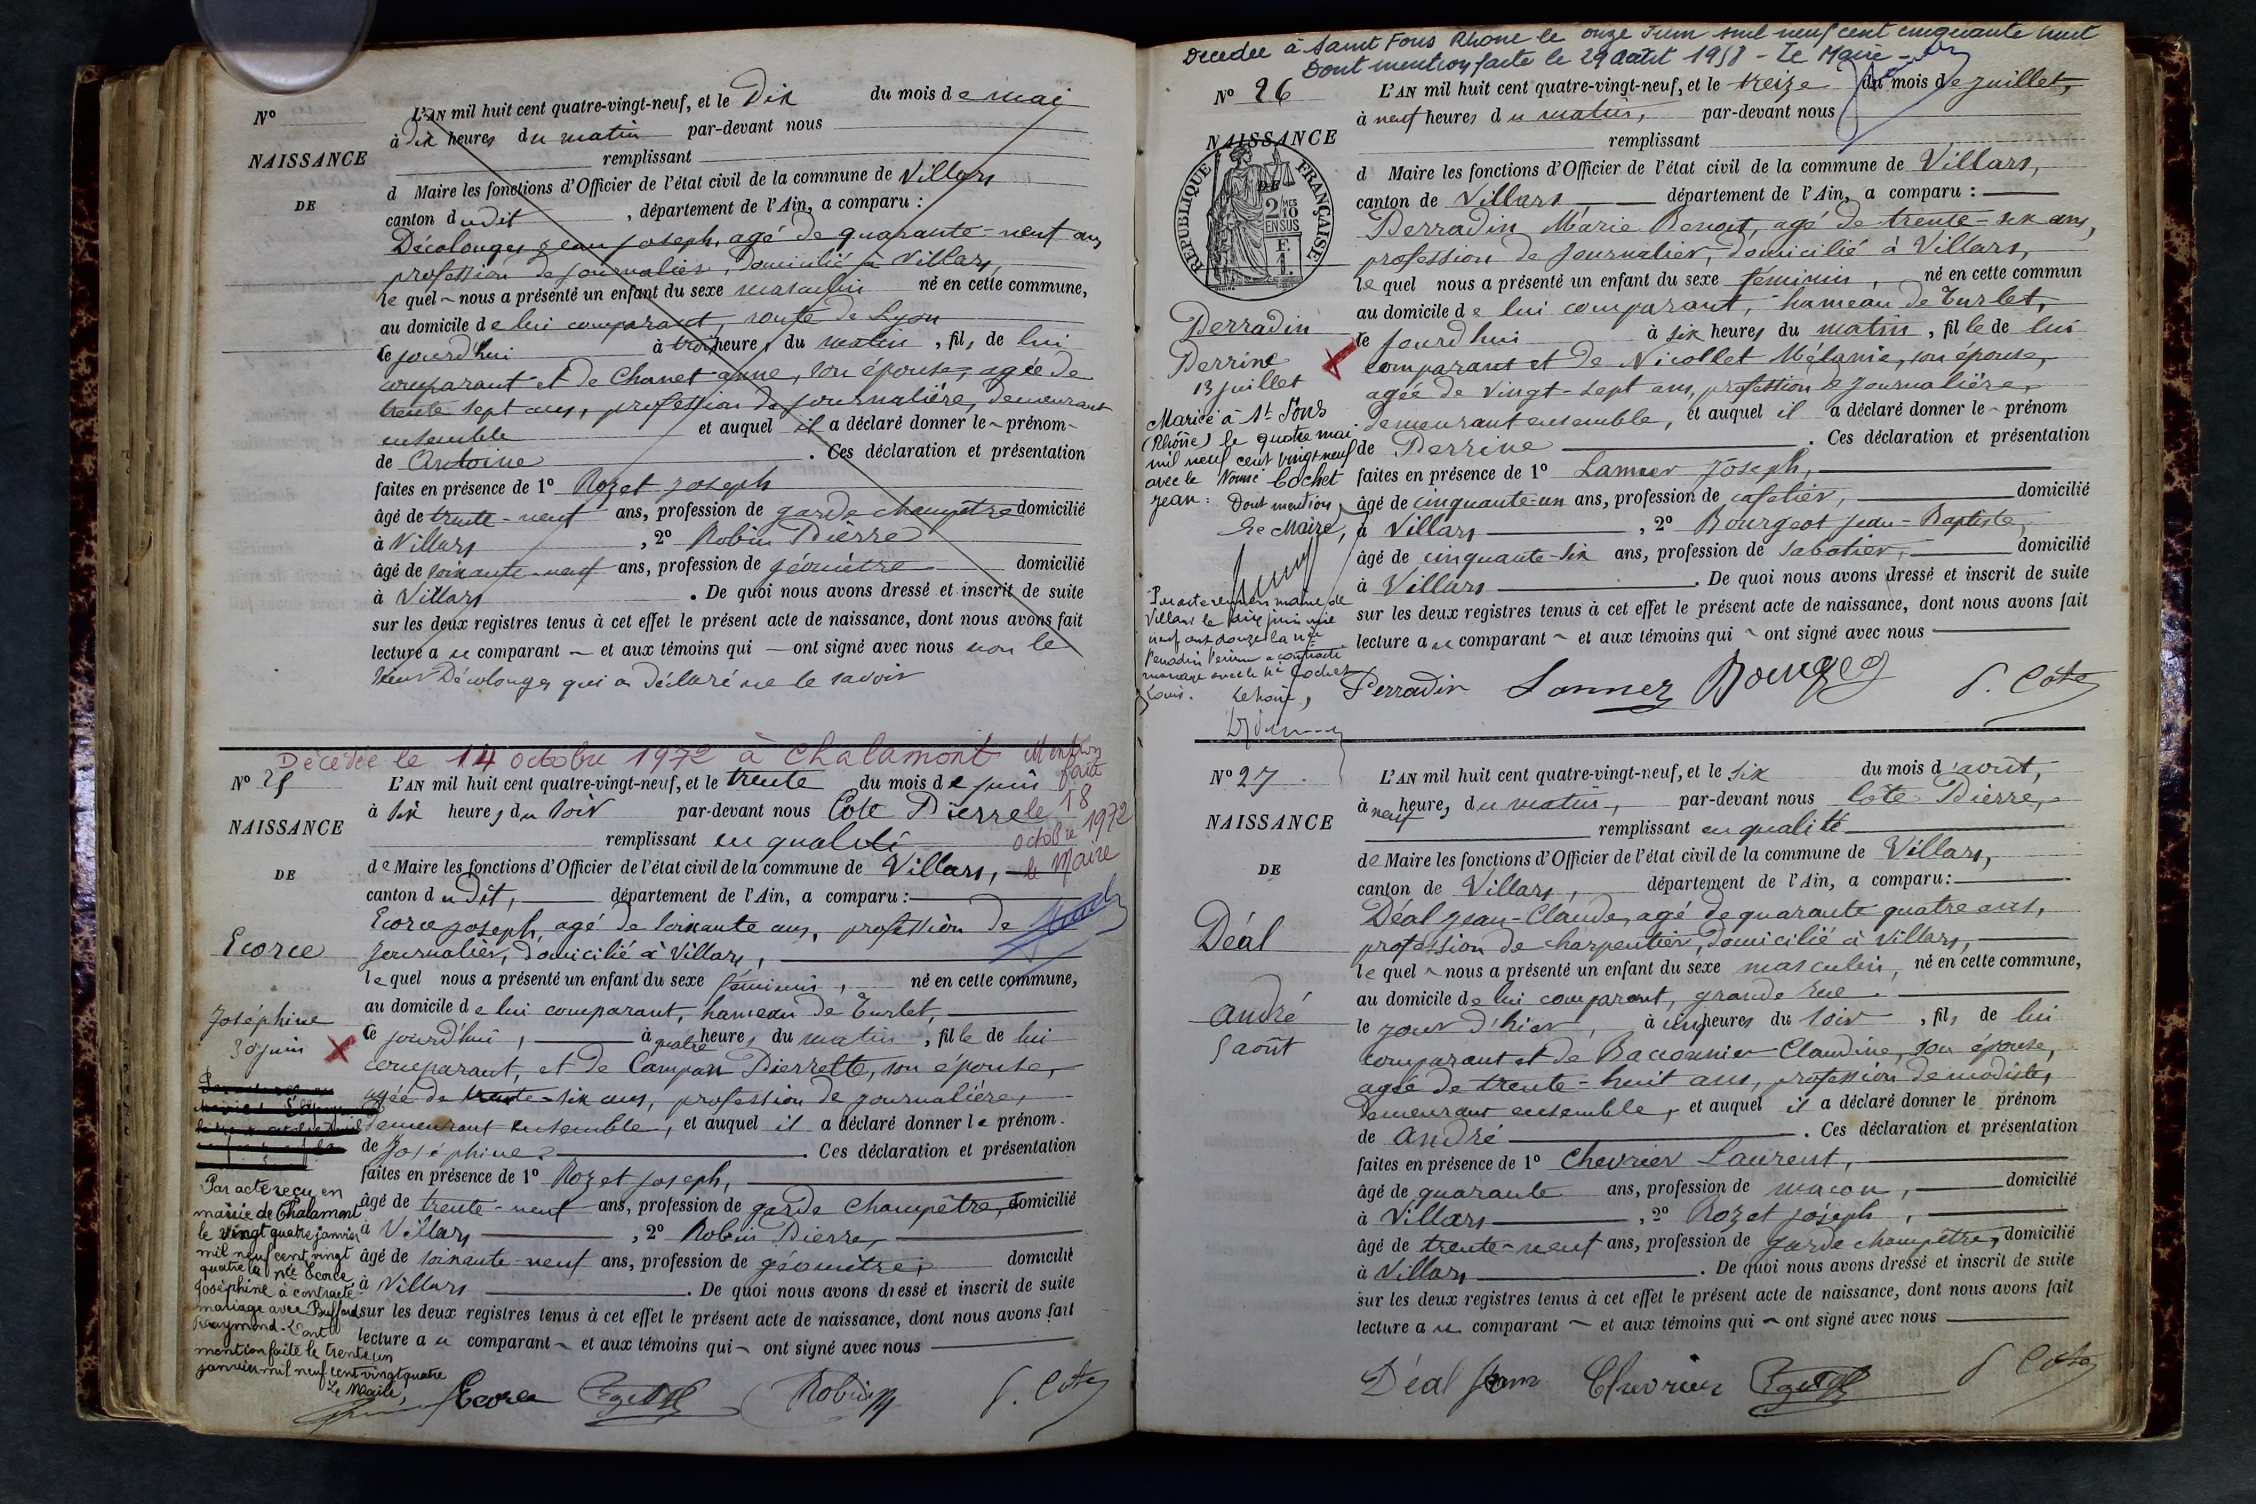 N°
NAISSANCE
DE
L'AN mil huit cent quatre-vingt-neuf, et le Dix du mois de mai
à dix heures du matin par-devant nous
remplissant
d Maire les fonctions d'Officier de l'état civil de la commune de Villars
canton dudit, département de l'Ain, a comparu :
Décolonges Jean Joseph, agé de quarante-neuf ans
profession de journalier, domicilié à Villars,
le quel nous a présenté un enfant du sexe masculin né en cette commune,
au domicile de lui comparant, route de Lyon
ce jourd'hui à trois heures du matin, fils de lui
comparant et de Chanet anne, son épouse, agée de
trente sept ans, profession de journalière, demeurant
ensemble et auquel il a déclaré donner le prénom
de Antoine. Ces déclaration et présentation
faites en présence de 1° Rozet Joseph
âgé de trente-neuf ans, profession de garde champêtre domicilié
à Villars, 2° Robin Pierre
âgé de soixante-neuf ans, profession de géomètre domicilié
à Villars. De quoi nous avons dressé et inscrit de suite
sur les deux registres tenus à cet effet le présent acte de naissance, dont nous avons fait
lecture au comparant et aux témoins qui ont signé avec nous non le
sieur Décolonges qui a déclaré ne le savoir
Décédée le 14 octobre 1972 à Chalamont Mention
faite
le 18
octobre 1972
le Maire
N° 25
NAISSANCE
DE
Ecorce
Joséphine
30 juin
L'AN mil huit cent quatre-vingt-neuf, et le trente du mois de juin
à six heures du soir par-devant nous Cote Pierre
remplissant en qualité
de Maire les fonctions d'Officier de l'état civil de la commune de Villars,
canton dudit, département de l'Ain, a comparu :
Ecorce Joseph, agé de soixante ans, profession de
journalier, domicilié à Villars,
le quel nous a présenté un enfant du sexe féminin, né en cette commune,
au domicile de lui comparant, hameau de Turlet,
ce jourd'hui, à quatre heures du matin, fille de lui
comparant, et de Campan Pierrette, son épouse,
agée de trente-six ans, profession de journalière,
demeurant ensemble, et auquel il a déclaré donner le prénom
de Joséphine. Ces déclaration et présentation
faites en présence de 1° Rozet Joseph,
âgé de trente-neuf ans, profession de garde champêtre, domicilié
à Villars, 2° Robin Pierre,
âgé de soixante-neuf ans, profession de géomètre, domicilié
à Villars. De quoi nous avons dressé et inscrit de suite
sur les deux registres tenus à cet effet le présent acte de naissance, dont nous avons fait
lecture au comparant et aux témoins qui ont signé avec nous
Par acte reçu en
mairie de Chalamont
le vingt quatre janvier
mil neuf cent vingt
quatre la née Ecorce
Joséphine à contracté
mariage avec Buffard
Raymond. Dont
mention faite le trente un
janvier mil neuf cent vingt quatre
Le Maire,
Ecorce Robin P. Cote
Décédée à Saint Fons Rhône le onze Juin mil neuf cent cinquante huit
Dont mention faite le 29 août 1958 - Le Maire -
N° 26
NAISSANCE
DE
REPUBLIQUE FRANÇAISE
2 MES 10 EN SUS
Perradin
Perrine
13 juillet
Mariée à St Fons
(Rhône) le quatre mai
mil neuf cent vingt neuf
avec le nommé Cochet
Jean :
Dont mention
Le Maire,
Par acte reçu en mairie de
Villars le dix juin mil
neuf cent douze la née
Perradin Perrine a contracté
mariage avec le né Cochet
Louis.
Le Maire,
L'AN mil huit cent quatre-vingt-neuf, et le treize du mois de juillet,
à neuf heures du matin, par-devant nous
remplissant
d Maire les fonctions d'Officier de l'état civil de la commune de Villars,
canton de Villars, département de l'Ain, a comparu :
Perradin Marie Benoit, agé de trente-six ans,
profession de journalier, domicilié à Villars,
le quel nous a présenté un enfant du sexe féminin, né en cette commun
au domicile de lui comparant, hameau de Turlet,
ce jourd'hui à six heures du matin, fille de lui
comparant et de Nicollet Mélanie, son épouse,
agée de vingt-sept ans, profession de journalière,
demeurant ensemble, et auquel il a déclaré donner le prénom
de Perrine. Ces déclaration et présentation
faites en présence de 1° Lanner Joseph,
âgé de cinquante-un ans, profession de cafetier, domicilié
à Villars, 2° Bourgeot Jean-Baptiste,
âgé de cinquante-six ans, profession de sabotier, domicilié
à Villars. De quoi nous avons dressé et inscrit de suite
sur les deux registres tenus à cet effet le présent acte de naissance, dont nous avons fait
lecture au comparant et aux témoins qui ont signé avec nous
Perradin P. Cote
N° 27
NAISSANCE
DE
Déal
André
5 août
L'AN mil huit cent quatre-vingt-neuf, et le six du mois d'août,
à neuf heures du matin, par-devant nous Côte Pierre,
remplissant en qualité
de Maire les fonctions d'Officier de l'état civil de la commune de Villars,
canton de Villars, département de l'Ain, a comparu :
Déal Jean-Claude, agé de quarante quatre ans,
profession de charpentier, domicilié à Villars,
le quel nous a présenté un enfant du sexe masculin, né en cette commune,
au domicile de lui comparant, grande rue
le jour d'hier, à cinq heures du soir, fils de lui
comparant et de Raccounier Claudine, son épouse,
agée de trente-huit ans, profession de modiste,
demeurant ensemble, et auquel il a déclaré donner le prénom
de André. Ces déclaration et présentation
faites en présence de 1° Chevrier Laurent,
âgé de quarante ans, profession de maçon, domicilié
à Villars, 2° Rozet Joseph,
âgé de trente-neuf ans, profession de garde champêtre, domicilié
à Villars. De quoi nous avons dressé et inscrit de suite
sur les deux registres tenus à cet effet le présent acte de naissance, dont nous avons fait
lecture au comparant et aux témoins qui ont signé avec nous
Déal Jean Chevrier P. Cote